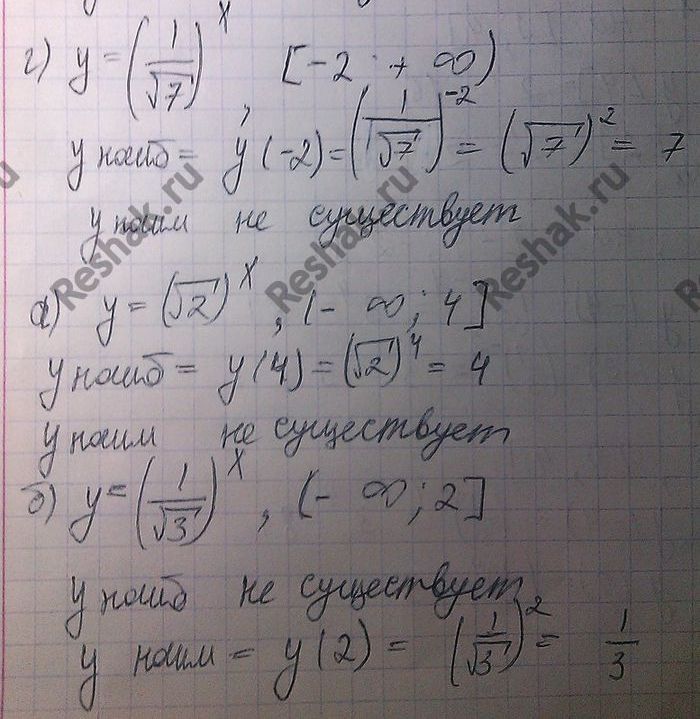 г) y = (1/√7)^x , [-2 ; + ∞)
y наиб = y(-2) = (1/√7)^-2 = (√7)^2 = 7
y наим не существует
а) y = (√2)^x , (- ∞ ; 4]
y наиб = y(4) = (√2)^4 = 4
y наим не существует
б) y = (1/√3)^x , (- ∞ ; 2]
y наиб не существует
y наим = y(2) = (1/√3)^2 = 1/3
Reshak.ru Reshak.ru Reshak.ru